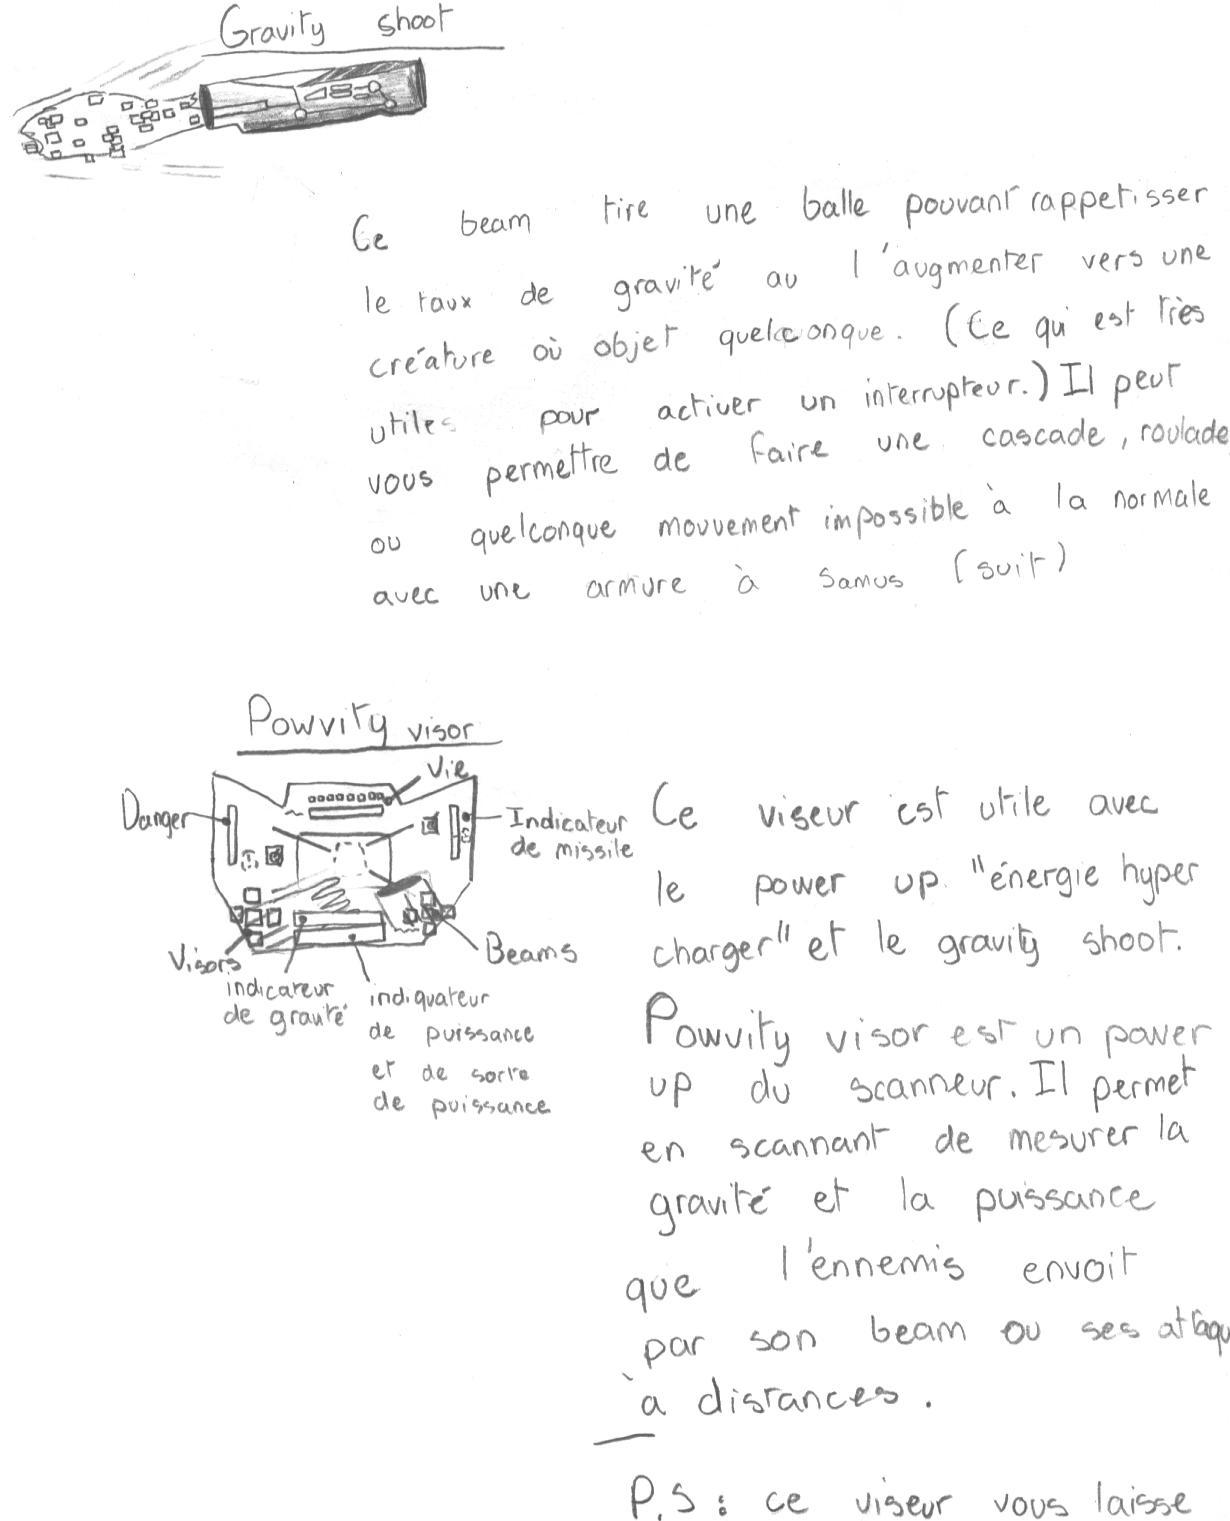 Gravity shoot
Ce beam tire une balle pouvant rappetisser
le taux de gravité au l'augmenter vers une
créature où objet quelconque. (Ce qui est très
utiles pour activer un interrupteur.) Il peut
vous permettre de faire une cascade, roulade
ou quelconque mouvement impossible à la normale
avec une armure à Samus (suit)
Powvity visor
Vie
Danger
Indicateur
de missile
Visors
Beams
indicateur
de gravité
indiquateur
de puissance
et de sorte
de puissance
Ce viseur est utile avec
le power up "énergie hyper
charger" et le gravity shoot.
Powvity visor est un power
up du scanneur. Il permet
en scannant de mesurer la
gravité et la puissance
que l'ennemis envoit
par son beam ou ses attaqu
à distances.
P.S : ce viseur vous laisse